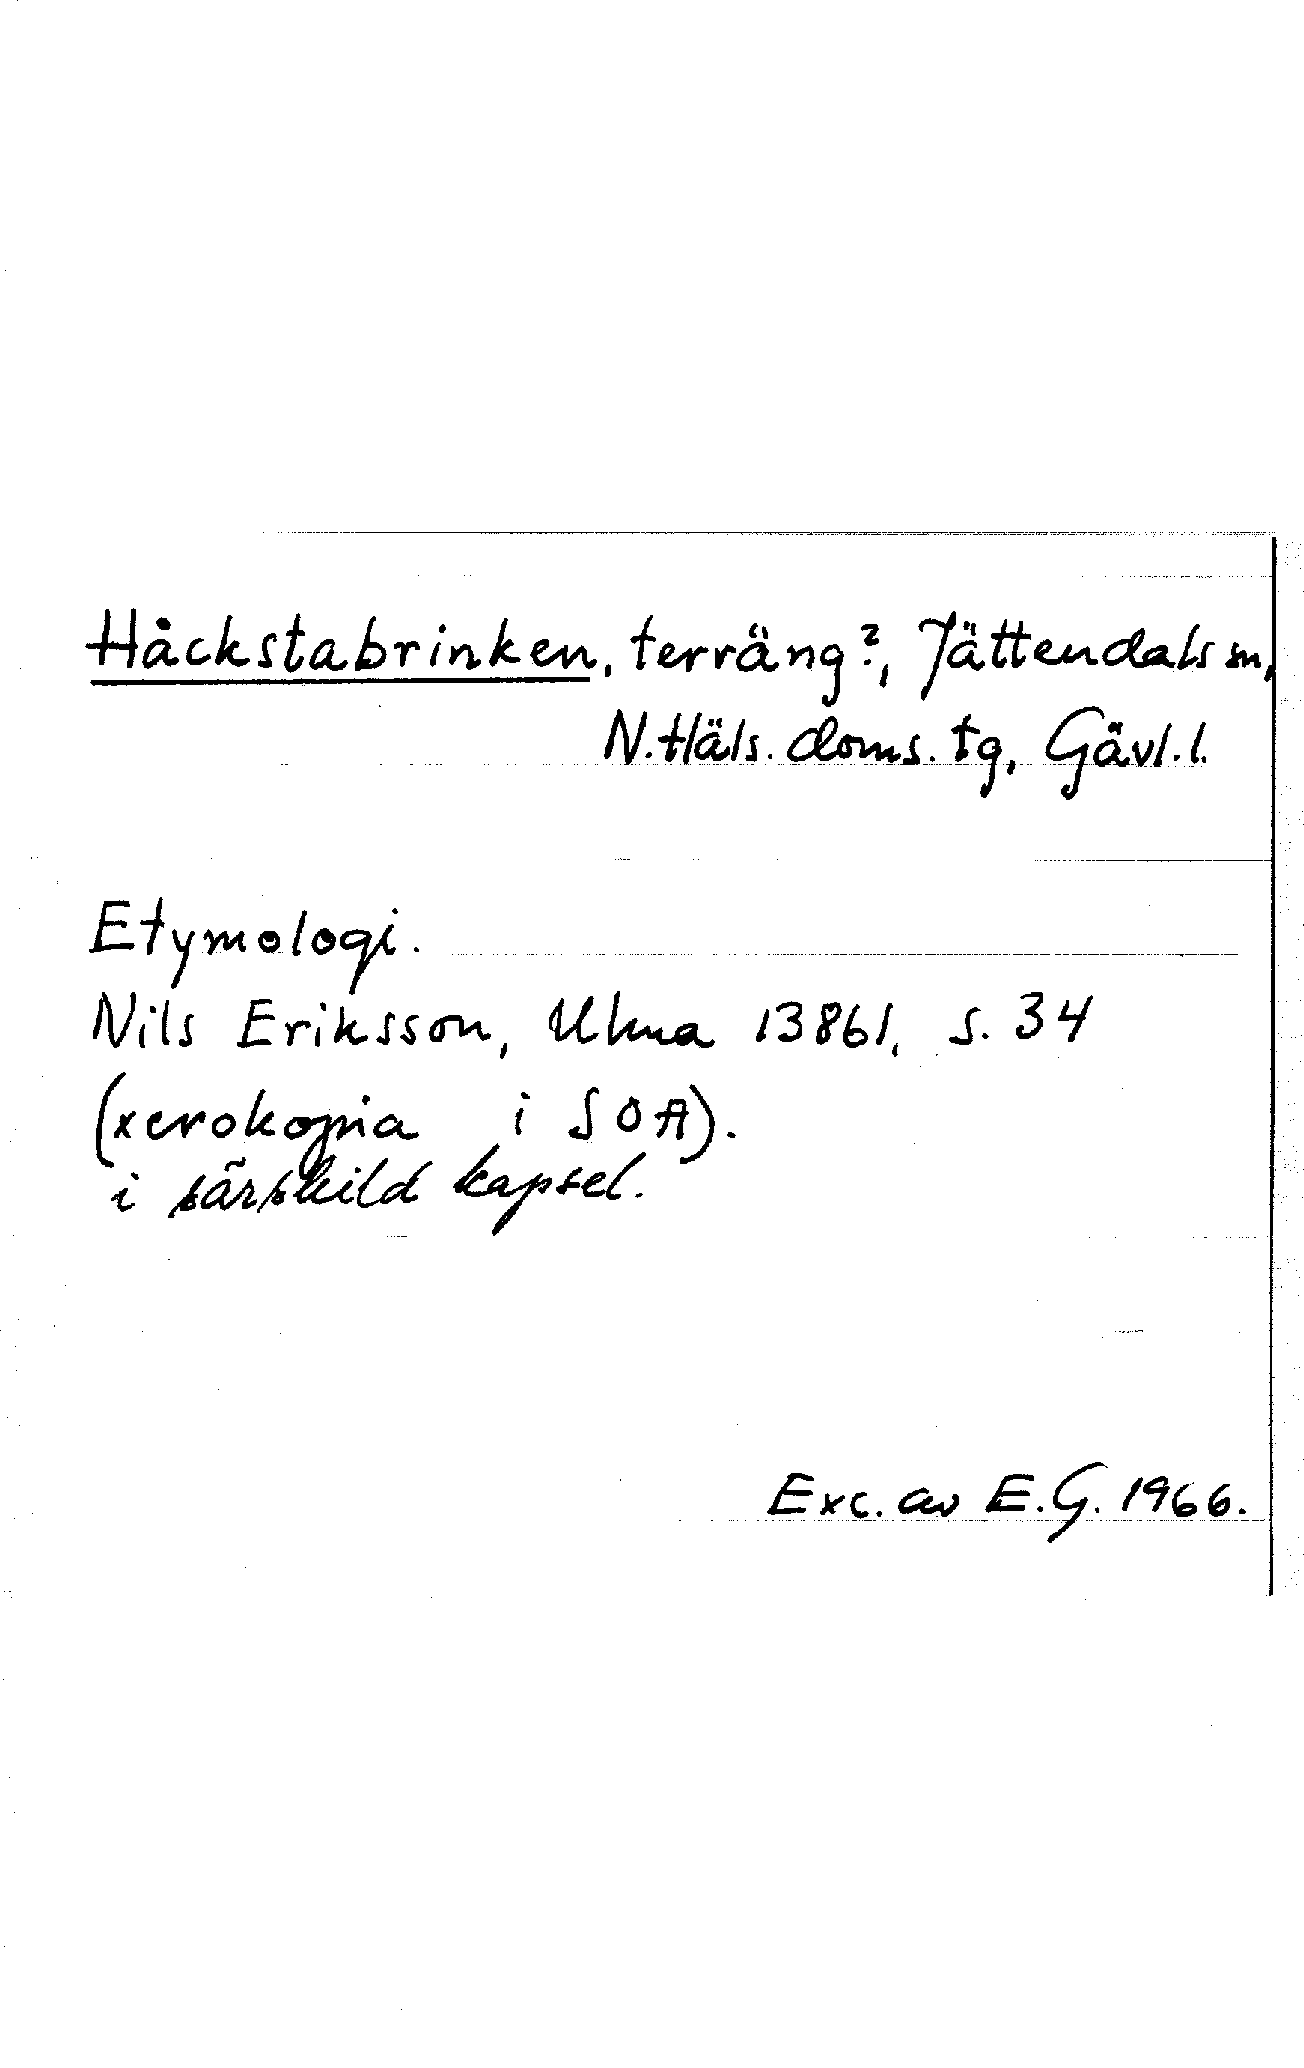 Håckstabrinken, terräng?, Jättendals sn,
N. Häls. doms. tg, Gävl. l.
Etymologi.
Nils Eriksson, Ulma 13861, s. 34
(xerokopia i SOA).
i särskild kapsel.
Exc. av E.G. 1966.